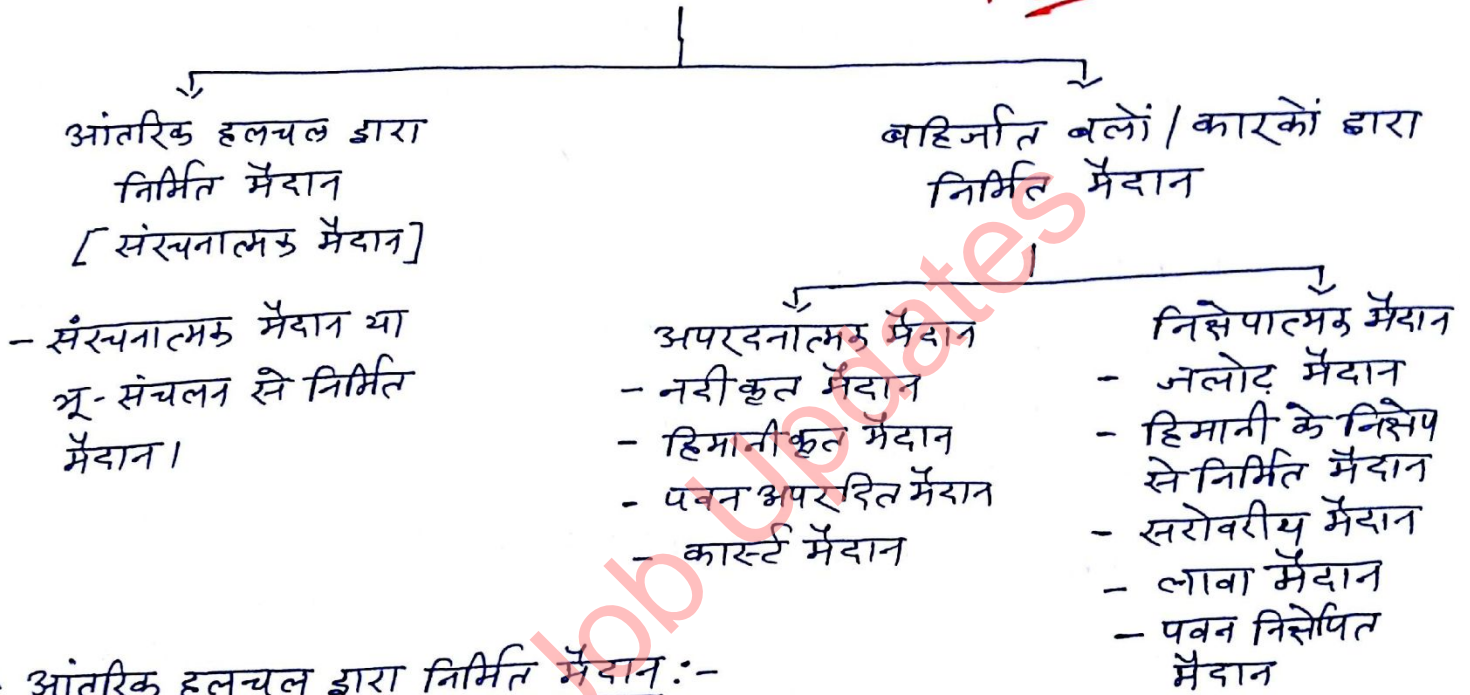 आंतरिक हलचल द्वारा
निर्मित मैदान
[संरचनात्मक मैदान]
- संरचनात्मक मैदान या
भू-संचलन से निर्मित
मैदान।
बहिर्जात बलों / कारकों द्वारा
निर्मित मैदान
अपरदनात्मक मैदान
- नदीकृत मैदान
- हिमानीकृत मैदान
- पवन अपरदित मैदान
- कार्स्ट मैदान
निक्षेपात्मक मैदान
- जलोढ़ मैदान
- हिमानी के निक्षेप
से निर्मित मैदान
- सरोवरीय मैदान
- लावा मैदान
- पवन निक्षेपित
मैदान
आंतरिक हलचल द्वारा निर्मित मैदान:-
Job Updates